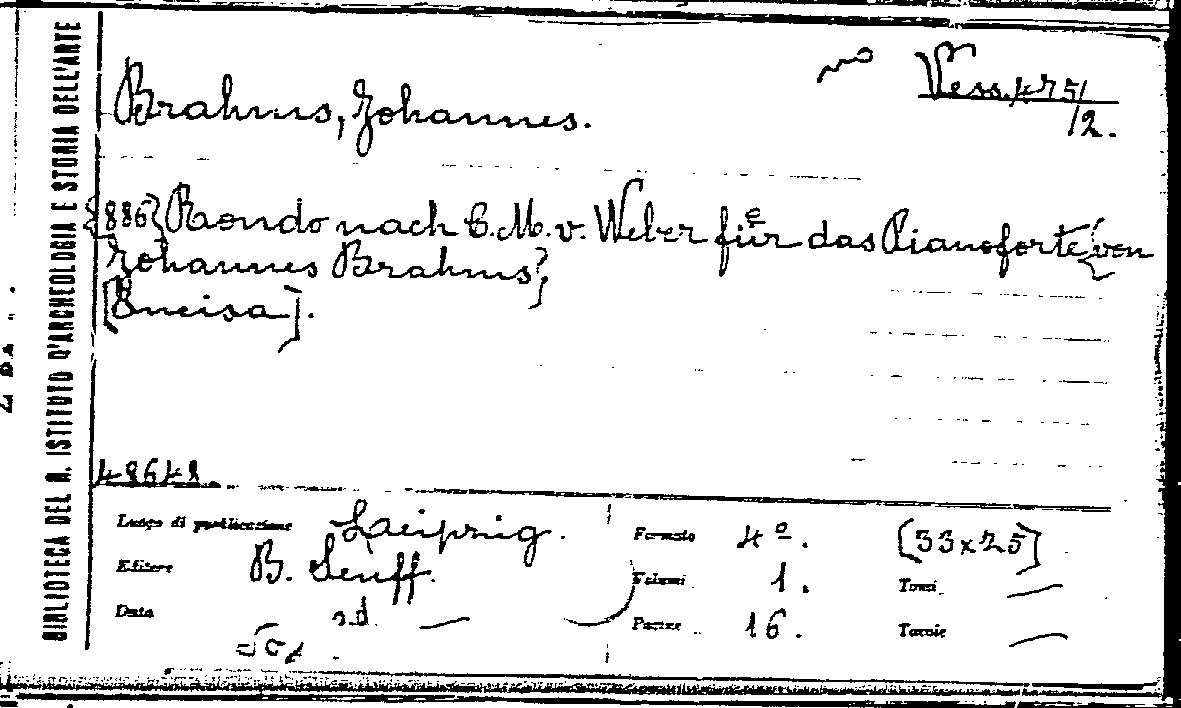 BIBLIOTECA DEL R. ISTITUTO D'ARCHEOLOGIA E STORIA DELL'ARTE
Vess. 475/
/2.
Brahms, Johannes.
{886} Rondo nach C.M.v. Weber für das Pianoforte {von
Johannes Brahms}
[Incisa].
48648.
Luogo di pubblicazione Leipzig.
Editore B. Senff.
Data s.d. —
Formato 4º. [33x25]
Volumi 1. Tomi —
Pagine 16. Tavole —